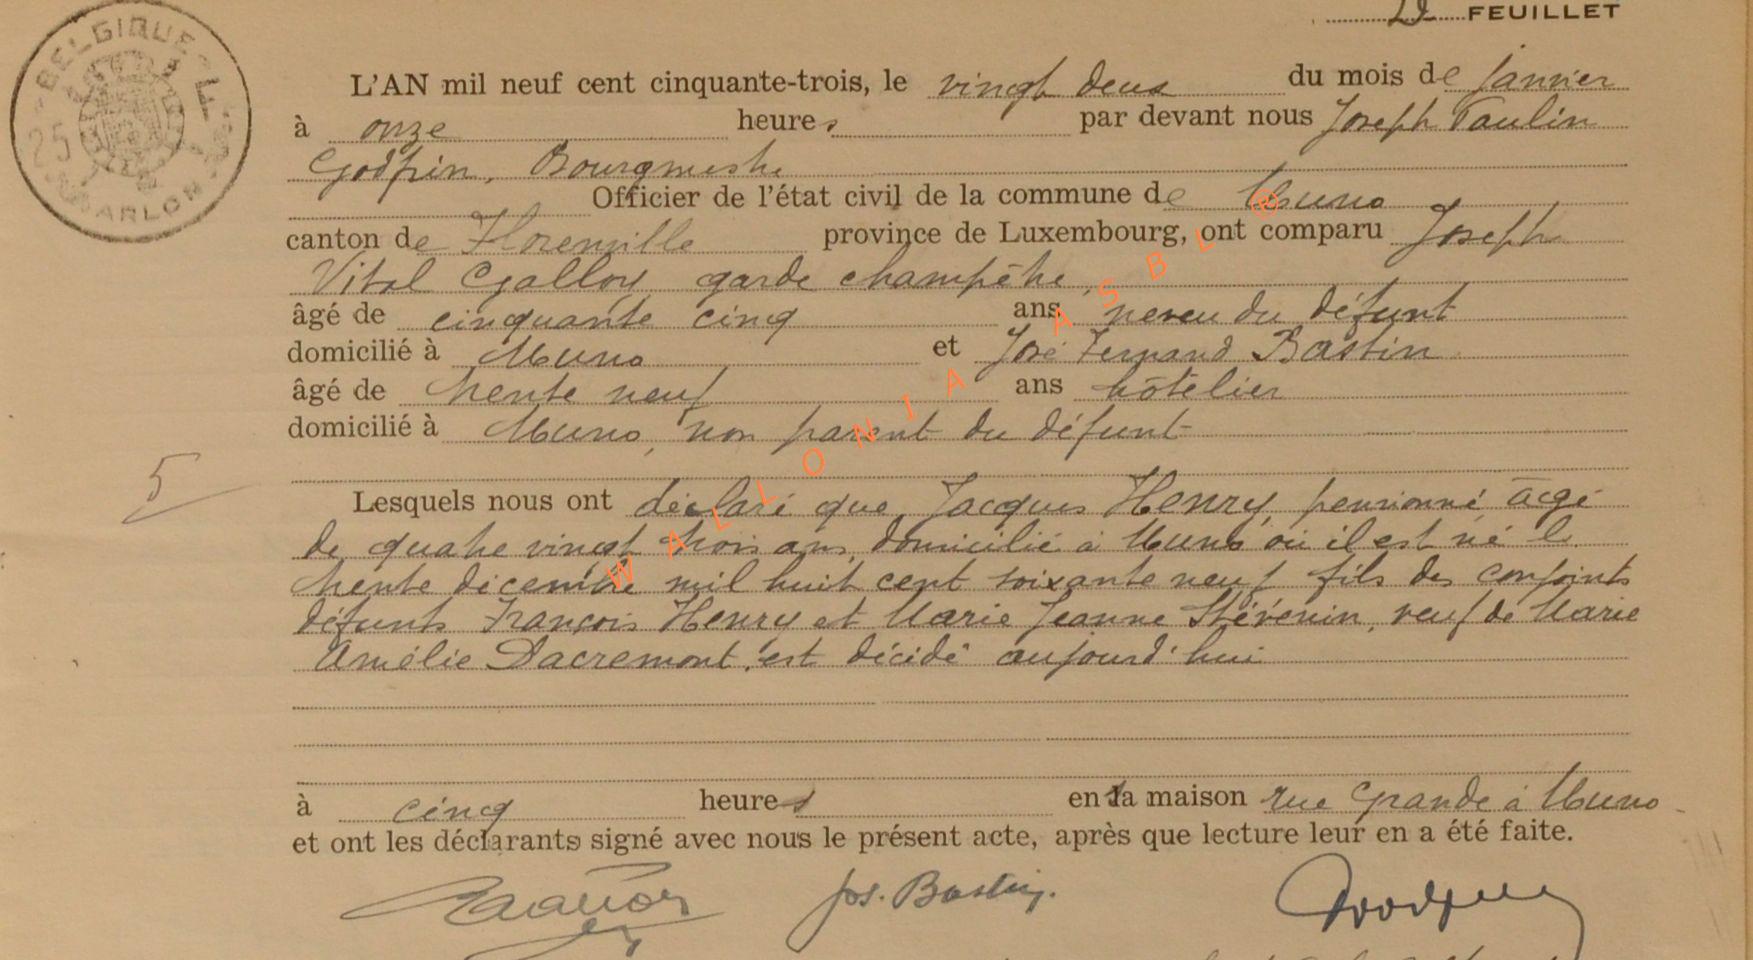 FEUILLET
BELGIQUE
25
ARLON
L'AN mil neuf cent cinquante-trois, le vingt deux du mois de janvier
à onze heures par devant nous Joseph Paulin
Godfrin, Bourgmestre
Officier de l'état civil de la commune de Muno
canton de Florenville province de Luxembourg, ont comparu Joseph
Vital Galloy garde champêtre,
âgé de cinquante cinq ans neveu du défunt
domicilié à Muno et José Fernand Bastin
âgé de trente neuf ans hôtelier
domicilié à Muno, non parent du défunt
5
Lesquels nous ont déclaré que Jacques Henry, pensionné, âgé
de quatre vingt trois ans, domicilié à Muno où il est né le
trente décembre mil huit cent soixante neuf fils des conjoints
défunts François Henry et Marie Jeanne Stévenin, veuf de Marie
Amélie Dacremont, est décidé aujourd'hui
à cinq heures en la maison rue Grande à Muno
et ont les déclarants signé avec nous le présent acte, après que lecture leur en a été faite.
Jos. Bastin.
WALLONIA ASBL ®